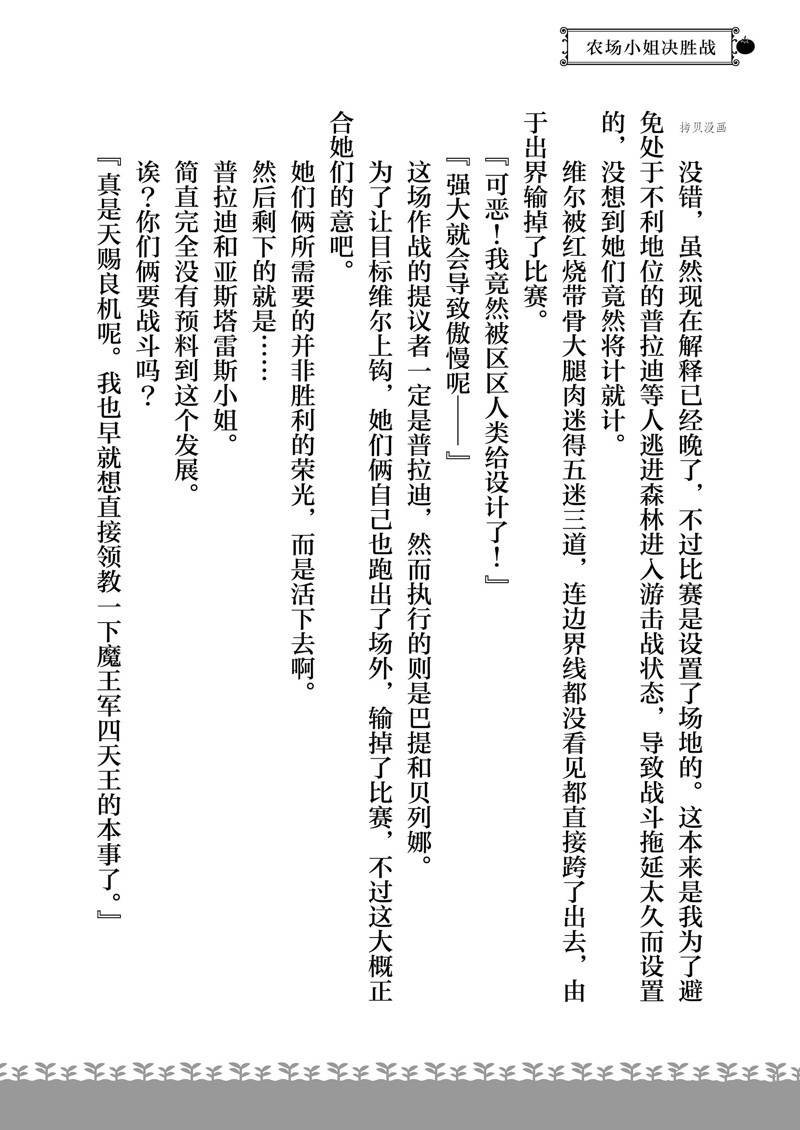 农场小姐决胜战
拷贝漫画
没错，虽然现在解释已经晚了，不过比赛是设置了场地的。这本来是我为了避
免处于不利地位的普拉迪等人逃进森林进入游击战状态，导致战斗拖延太久而设置
的，没想到她们竟然将计就计。
维尔被红烧带骨大腿肉迷得五迷三道，连边界线都没看见都直接跨了出去，由
于出界输掉了比赛。
『可恶！我竟然被区区人类给设计了！』
『强大就会导致傲慢呢——』
这场作战的提议者一定是普拉迪，然而执行的则是巴提和贝列娜。
为了让目标维尔上钩，她们俩自己也跑出了场外，输掉了比赛，不过这大概正
合她们的意吧。
她们俩所需要的并非胜利的荣光，而是活下去啊。
然后剩下的就是……
普拉迪和亚斯塔雷斯小姐。
简直完全没有预料到这个发展。
诶？你们俩要战斗吗？
『真是天赐良机呢。我也早就想直接领教一下魔王军四天王的本事了。』